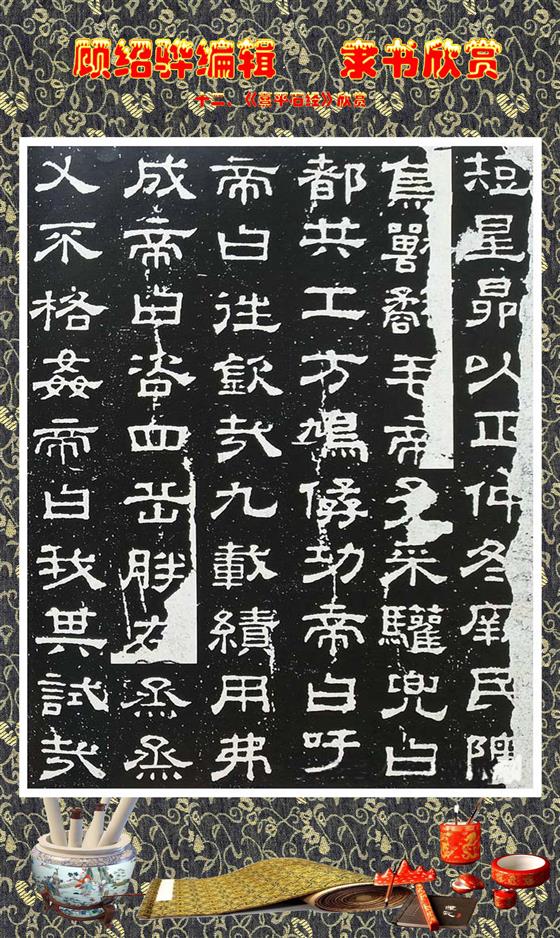 顾绍骅编辑 隶书欣赏
十二、《熹平石经》欣赏
短星昴以正仲冬厥民隩
鳥獸毛帝予采驩兜曰
都共工方鳩僝功帝曰吁
帝曰往欽哉九載績用弗
成帝曰咨四岳朕在烝烝
乂不格姦帝曰我其試哉